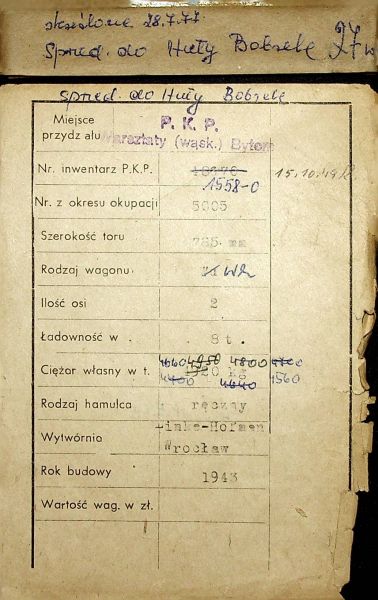 skreślone 28.7.77
Spred. do Huty Bobrek 27 w
spred. do Huty Bobrek
Miejsce przydziału P. K. P. Warsztaty (wąsk.) Bytom
Nr. inwentarz P.K.P. 1558-0 15.10.49
Nr. z okresu okupacji 5005
Szerokość toru 785 mm
Rodzaj wagonu
Ilość osi 2
Ładowność w . 8 t.
4660 4950 4800 4700
Ciężar własny w t. 920 kg
4700 4640 4560
Rodzaj hamulca ręczny
Wytwórnia Linke-Hofman Wrocław
Rok budowy 1943
Wartość wag. w zł.